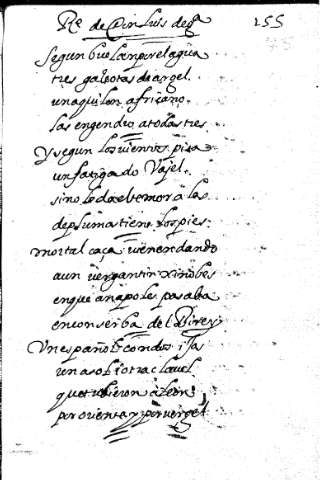 Rce de Don Luis de gª 155
75
Segun buelan por el agua
tres galeotas de argel.
un aquilon africano
las engendro a todas tres
Y segun los vientos pisa
un fatigado Vajel.
sino le da el temor alas
de pluma tiene los pies.
mortal caça vienen dando
a un vergantin xinobes
en que a napoles pasaba
en conserba del Virey
Un español con dos ijas
una sol i otra clavel
que tubieron a Leon
por oriente y por vergel